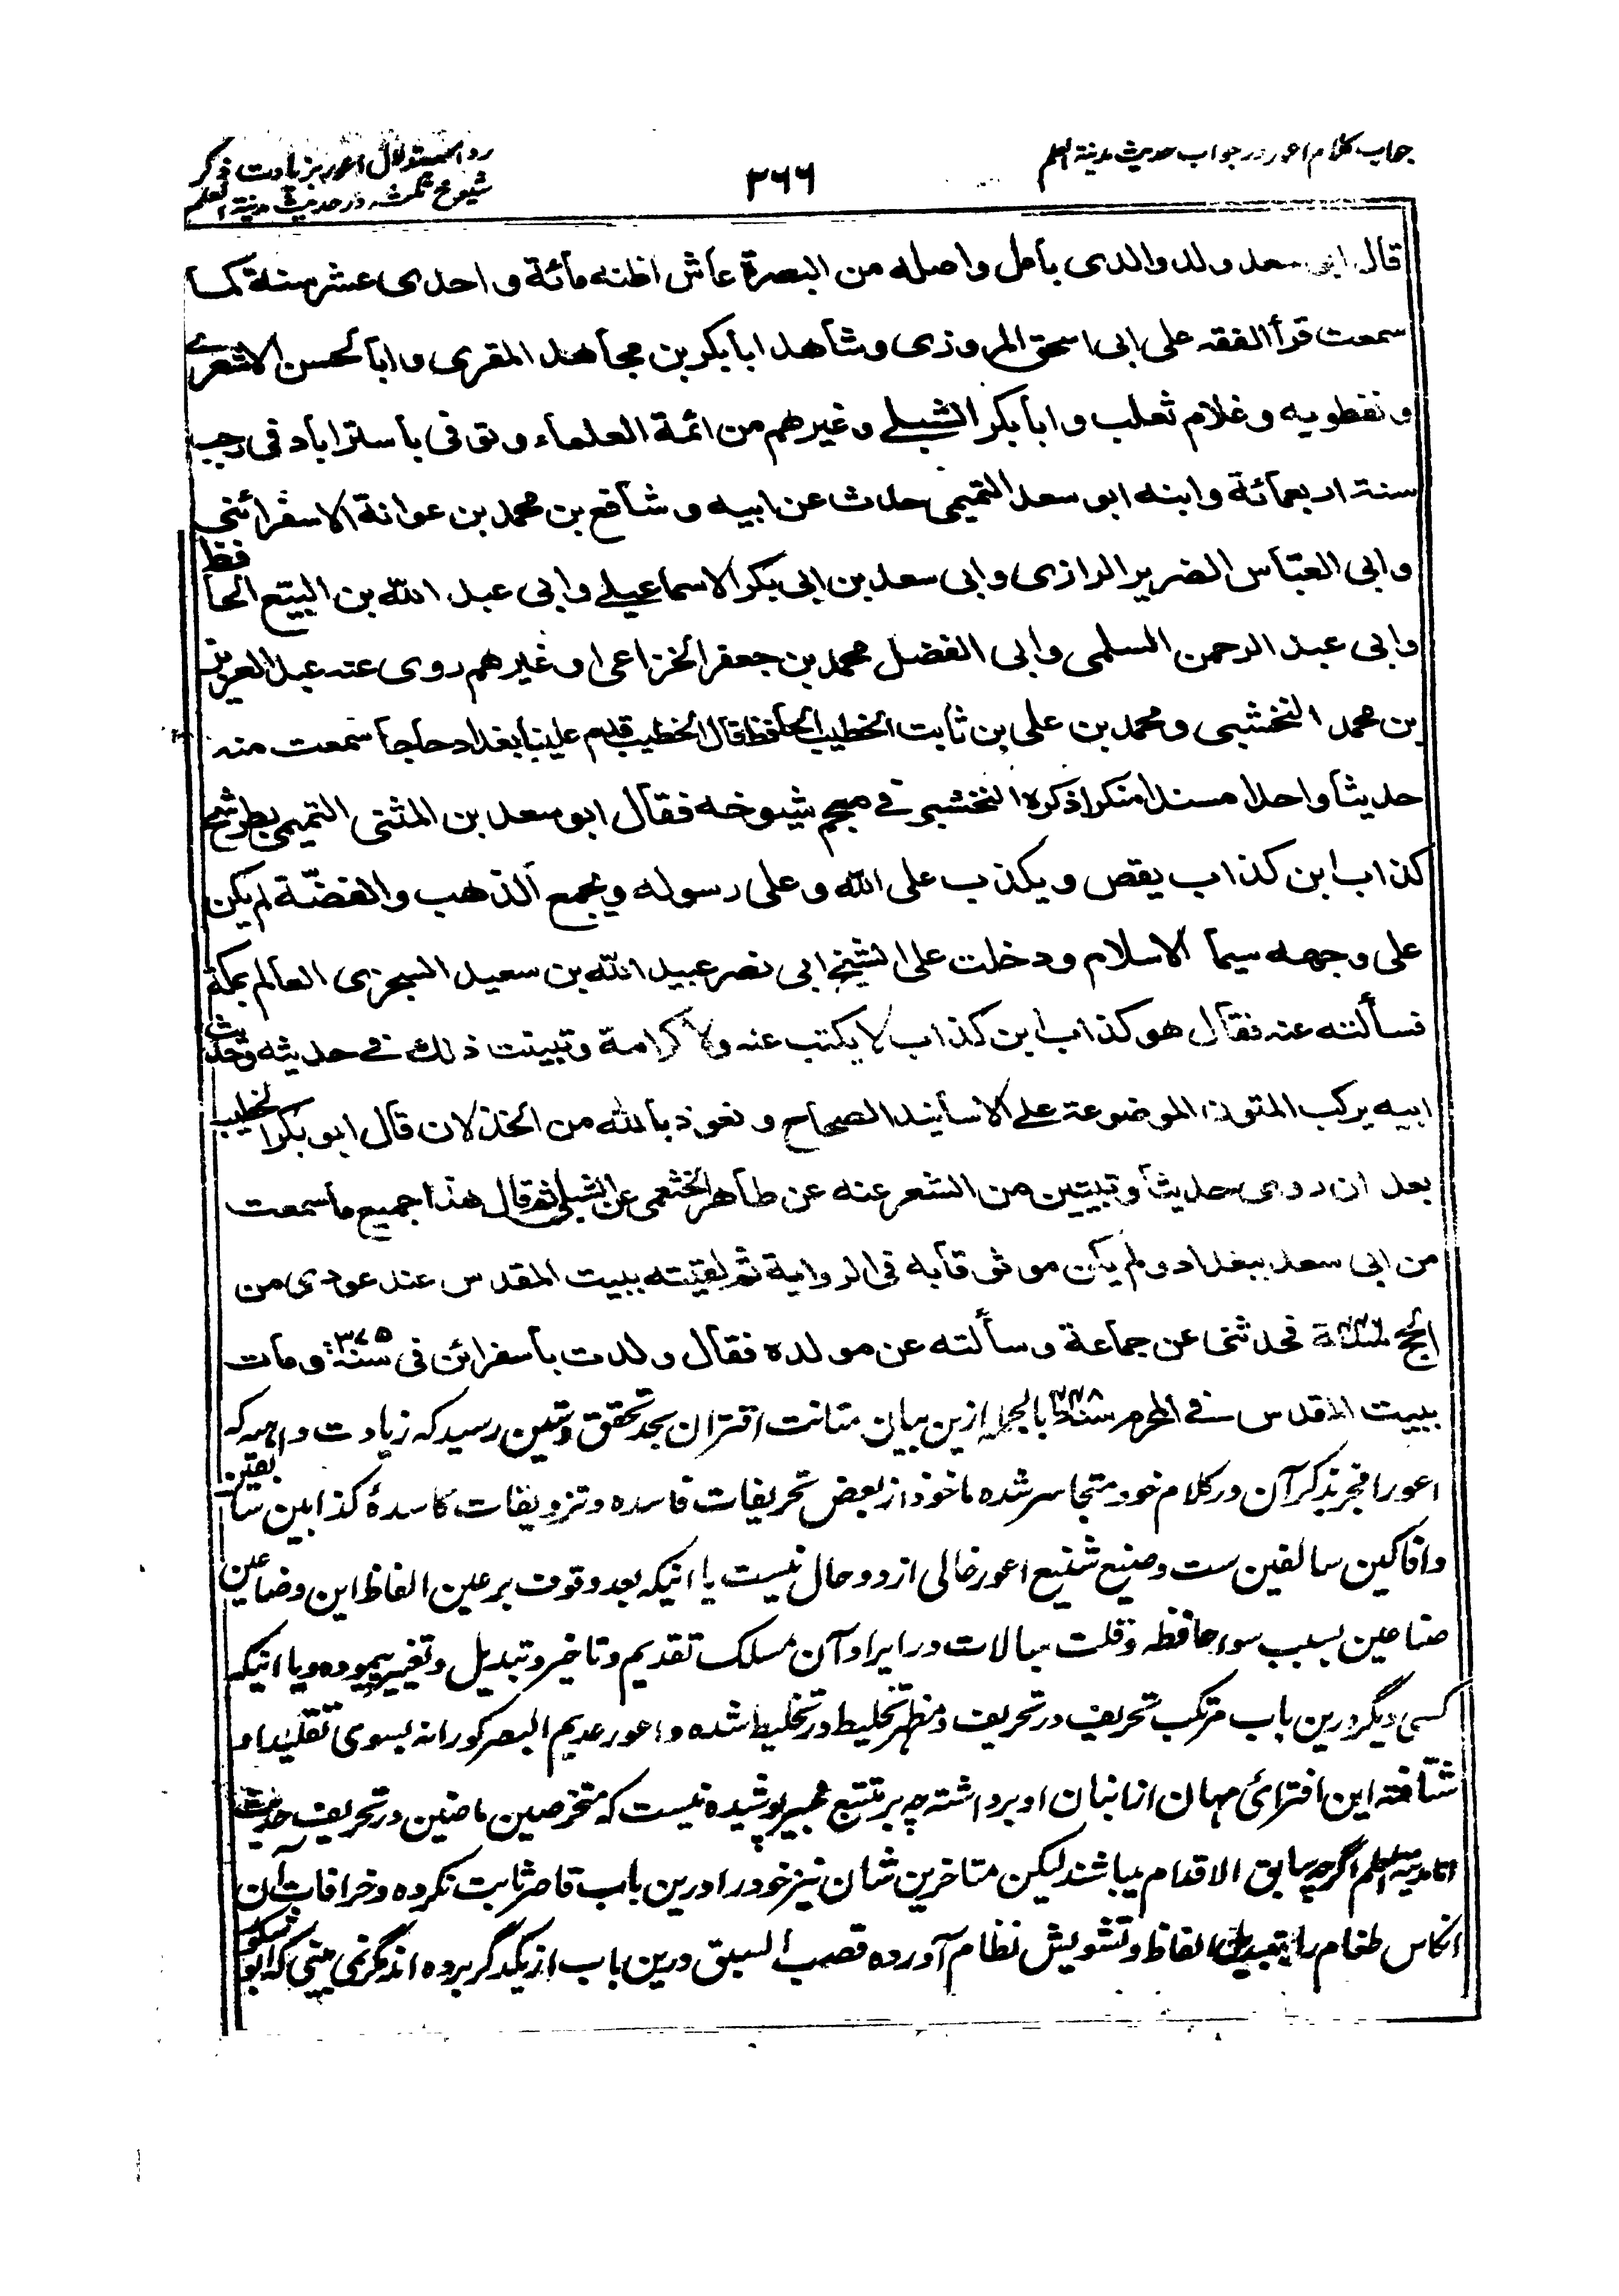 جواب کلام اعور در جواب حدیث مدینة العلم
۳۶۶
رد استدلال اعور بزیادت ذکر
شیوخ ثلثه در حدیث مدینة العلم
قال ابو سعد ولد والدی بآمل واصله من البصرة عاش اظنه مائة و احدی عشر سنة کما
سمعت قرأ الفقه علی ابی اسحق المروزی و شاهد ابا بکر بن مجاهد المقری و ابا الحسن الاشعرے
و نفطویه و غلام ثعلب و ابا بکر الشبلے و غیرهم من ائمة العلماء و توفی باستراباد فی رجب
سنة اربعمائة و ابنه ابو سعد التمیمی حدث عن ابیه و شافع بن محمد بن عوانة الاسفرائنی
و ابی العباس الضریر الرازی و ابی سعد بن ابی بکر الاسماعیلے و ابی عبد الله بن البیّع الحافظ
و ابی عبد الرحمن السلمی و ابی الفضل محمد بن جعفر الخزاعی و غیرهم روی عنه عبد العزیز
بن محمد النخشبی و محمد بن علی بن ثابت الخطیب الحافظ قال الخطیب قدم علینا بغداد حاجا سمعت منه
حدیثا واحدا مسندا منکرا ذکره النخشبی فے معجم شیوخه فقال ابو سعد بن المثنی التمیمی شیخ
کذاب ابن کذاب یقص و یکذب علی الله و علی رسوله و یجمع الذهب و الفضّة لم یکن
علی وجهه سیما الاسلام و دخلت علی الشیخ ابی نصر عبید الله بن سعید السجزی العالم بمکة
فسألته عنه فقال هو کذاب ابن کذاب لا یکتب عنه و لا کرامة و تبینت ذلك فے حدیثه و حدیث
ابیه یرکب المتون الموضوعة علے الاسانید الصحاح و نعوذ بالله من الخذلان قال ابو بکر الخطیب
بعد ان روی حدیثا و بیتین من الشعر عنه عن طاهر الخثعمی عن الشبلی ثم قال هذا جمیع ما سمعت
من ابی سعد ببغداد و لم یکن موثوقا به فی الروایة ثم لقیته ببیت المقدس عند عودی من
الحج فحدثنی عن جماعة و سألته عن مولده فقال ولدت باسفرائن فی سنة ۳۷۵ و مات
ببیت المقدس فے المحرم بالجمله ازین بیان متانت اقتران بحد تحقق و تیقن رسید که زیادت واهیه که
اعور افجر بذکر آن در کلام خود متجاسر شده ماخوذ از بعض تحریفات فاسده و تزویقات کاسدهٔ کذابین سابقین
و افاکین سالفین ست و صنیع شنیع اعور خالی از دو حال نیست یا اینکه بعد وقوف بر عین الفاظ این وضاعین
صناعین بسبب سوء حافظه و قلت مبالات در ایراد آن مسلک تقدیم و تاخیر و تبدیل و تغییر پیموده و یا اینکه
کسی دیگر درین باب مرتکب تحریف در تحریف و مظهر تخلیط در تخلیط شده و اعور عدیم البصر کورانه بسوی تقلید او
شتافته این افترای مهان از انبان او برداشته چه بر متتبع خبیر پوشیده نیست که متخرصین ماضین در تحریف حدیث
انا مدینة العلم اگرچه سابق الاقدام میباشند لیکن متاخرین شان نیز خود را درین باب قاصر ثابت نکرده و خرافات آن
انکاس طغام را بتبدیل الفاظ و تشویش نظام آورده قصب السبق درین باب از یکدگر برده اند نمی بینی که ابو شکور